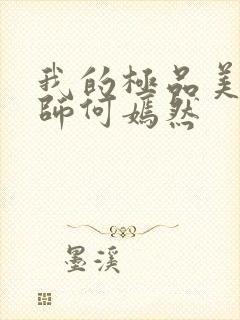 我的極品美
師何嫣然
墨溪